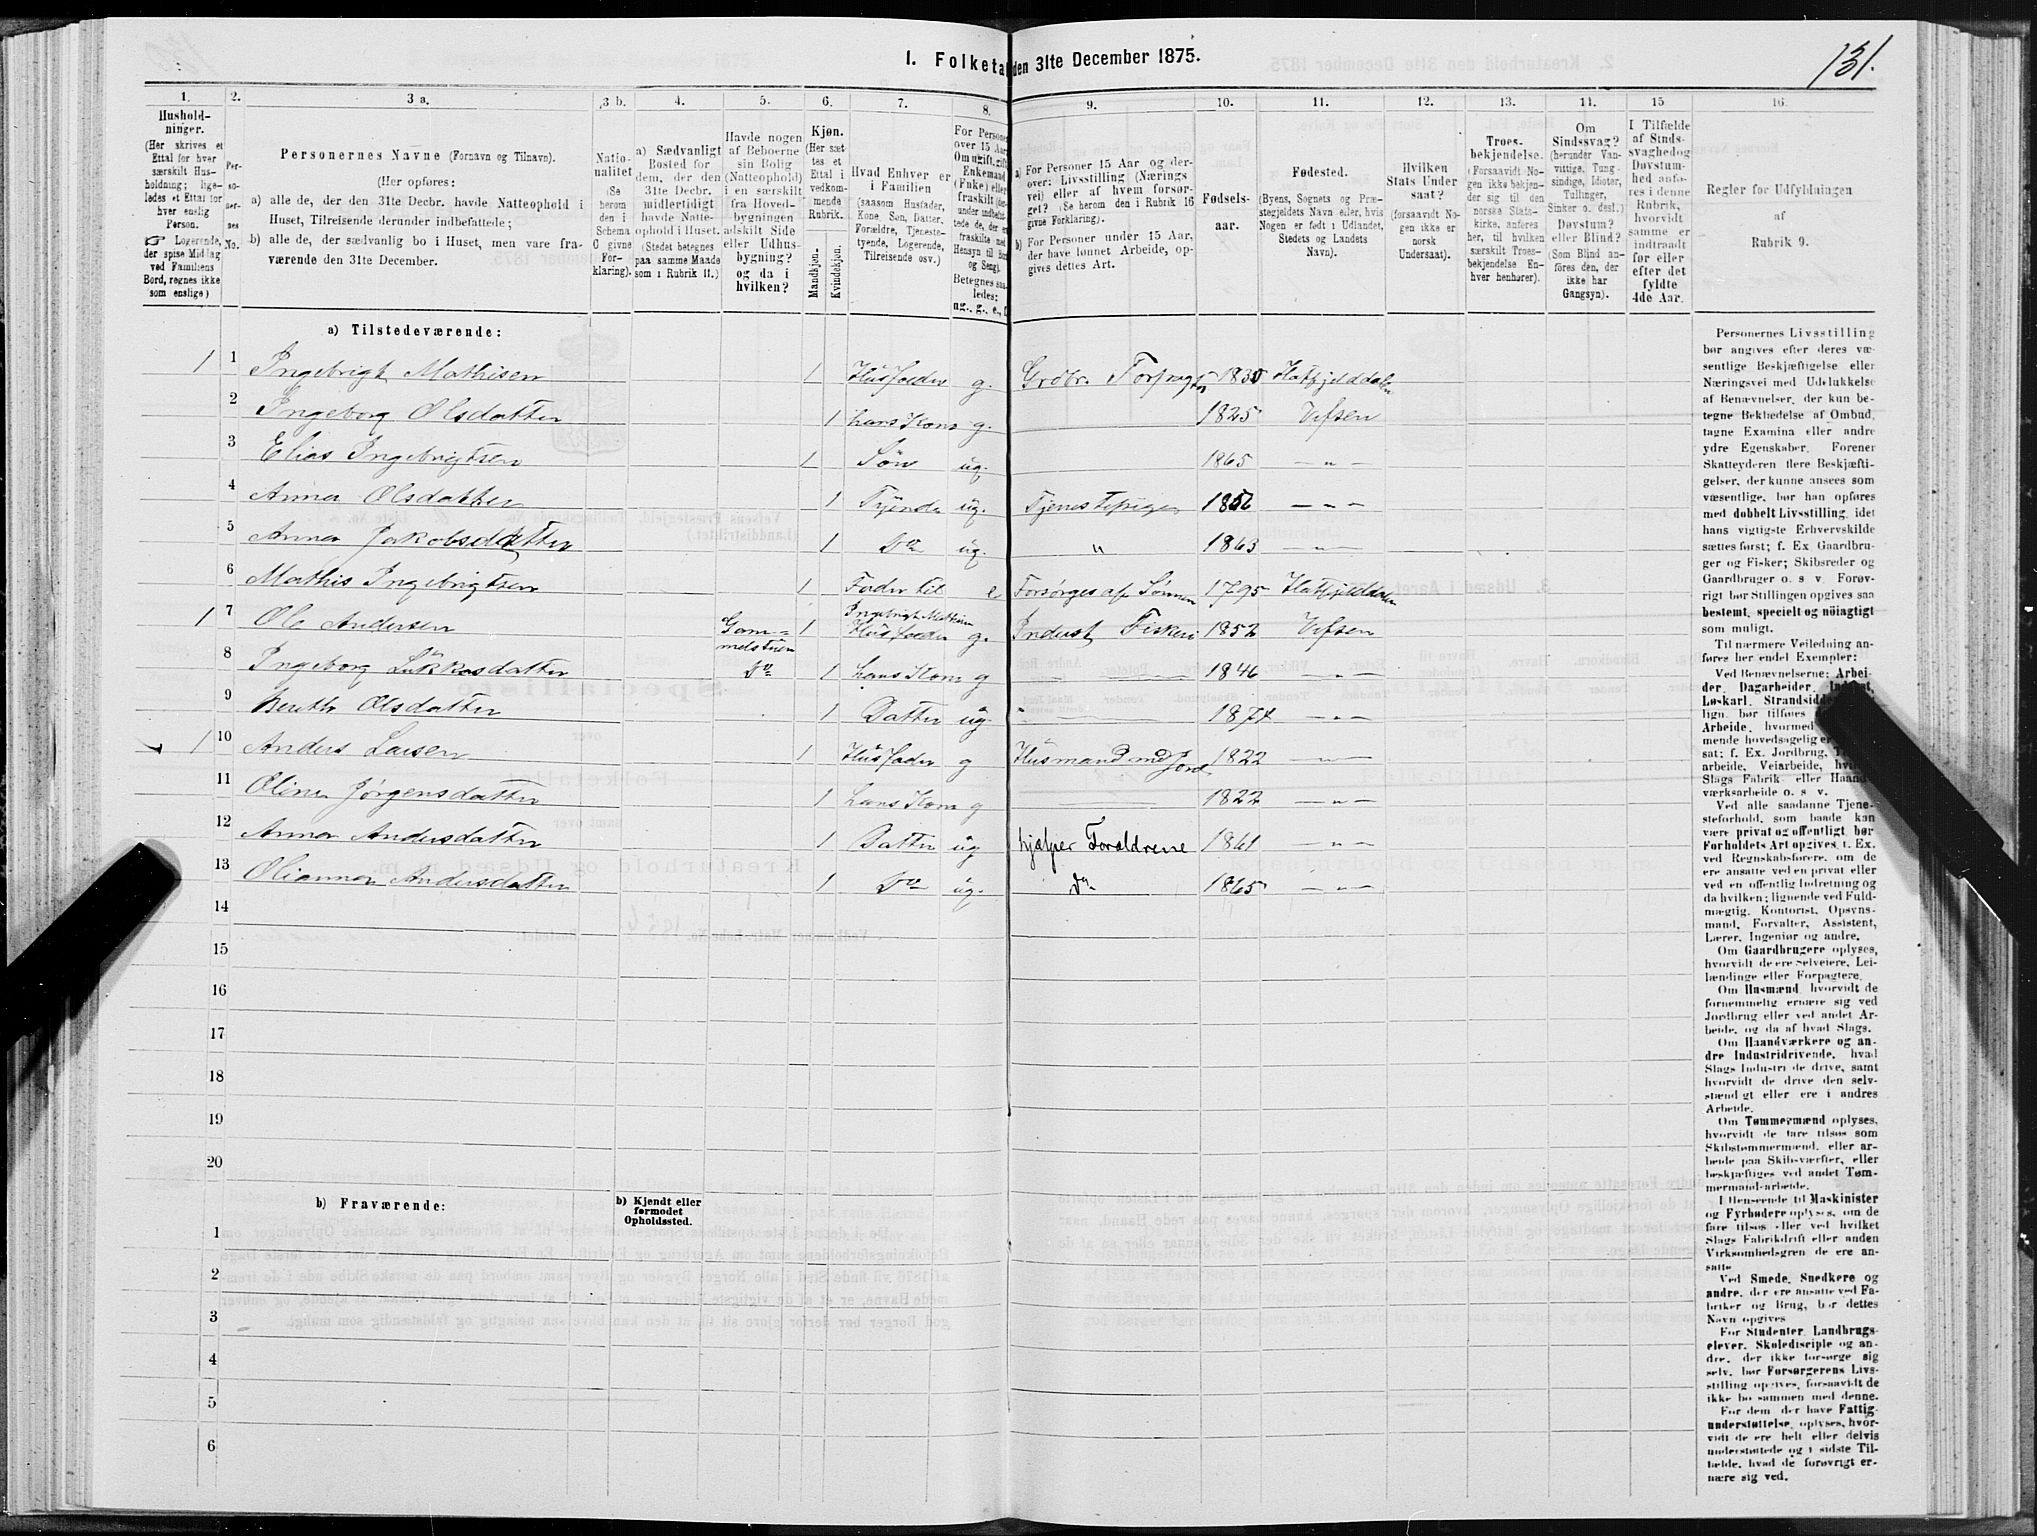 131.
1. Folketal den 31te December 1875.
1. 2. 3 a. 3 b. 4. 5. 6. 7. 8. 9. 10. 11. 12. 13. 14. 15 16.
Husholdninger.
(Her skrives et
Ettal for hver
særskilt Husholdning; ligeledes et Ettal for
hver enslig
Person.
☞ Logerende,
der spise Middag
ved Familiens
Bord, regnes ikke
som enslige)
Personernes No.
Personernes Navne (Fornavn og Tilnavn).
(Her opføres:
a) alle de, der den 31te Decbr. havde Natteophold i
Huset, Tilreisende derunder indbefattede;
b) alle de, der sædvanlig bo i Huset, men vare fraværende den 31te December.
Nationalitet
(Se
herom
den i
Schema
C givne
Forklaring).
a) Sædvanligt
Bosted for
dem, der den
31te Decbr.
midlertidigt
havde Natteophold i Huset.
(Stedet betegnes
paa samme Maade
som i Rubrik 11.)
Havde nogen
af Beboerne
sin Bolig
(Natteophold)
i en særskilt
fra Hovedbygningen
adskilt Sideeller Udhusbygning?
og da i
hvilken?
Kjøn.
(Her sættes et
Ettal i
vedkommende
Rubrik.
Mandkjøn.
Kvindekjøn.
Hvad Enhver er
i Familien
(saasom Husfader,
Kone, Søn, Datter,
Forældre, Tjenestetyende, Logerende,
Tilreisende osv.)
a) For Personer 15 Aar og derover: Livsstilling (Næringsvei) eller af hvem forsørget? (Se herom den i Rubrik 16
givne Forklaring).
b) For Personer under 15 Aar,
der have lønnet Arbeide, opgives dettes Art.
Fødselsaar.
Fødested.
(Byens, Sognets og Præstegjeldets Navn eller, hvis
Nogen er født i Udlandet,
Stedets og Landets
Navn).
Hvilken
Stats Undersaat?
(forsaavidt Nogen ikke er
norsk
Undersaat).
Troesbekjendelse.
(Forsaavidt Nogen ikke bekjender sig til den
norske Statskirke, anføres
her, til hvilken
særskilt Troesbekjendelse Enhver henhører).
Om
Sindssvag?
(herunder Vanvittige, Tungsindige, Idioter,
Tullinger,
Sinker o. desl.)
Døvstum?
eller Blind?
(Som Blind anføres den, der
ikke har
Gangsyn).
I Tilfælde
af Sindssvaghed og
Døvstumhed anføres i denne
Rubrik,
hvorvidt
samme er
indtraadt
før eller
efter det
fyldte
4de Aar.
Regler for Udfyldningen
af
Rubrik 9.
a) Tilstedeværende:
1 1 Ingebrigt Mathisen 1 Husfader g. Grdbr. 1830 Hatfjelddalen
2 Ingeborg Olsdatter 1 hans Kone g. 1825 Vefsen
3 Elias Ingebrigtsen 1 Søn ug. 1865 — " —
4 Anna Olsdatter 1 Tjende ug. Tjenestepige 1852 — " —
5 Anna Jakobsdatter 1 Do ug. " 1863 — " —
6 Mathis Ingebrigtsen 1 Fader til Ingebrigt Mathisen e Forsørges af Sønnen 1795 Hatfjelddalen
1 7 Ole Andersen Gammelstuen 1 Husfader g. Inderst Fiskeri 1852 Vefsen
8 Ingeborg Lukkasdatter Do 1 hans Kone g 1846 — " —
9 Berith Olsdatter 1 Datter ug. 1874 — " —
1 10 Anders Larsen 1 Husfader g Husmand med Jord 1822 — " —
11 Oline Jørgensdatter 1 hans Kone g 1822 — " —
12 Anna Andersdatter 1 Datter ug hjælper Forældrene 1861 — " —
13 Olianna Andersdatter 1 Do ug. Do 1865 — " —
14
15
16
17
18
19
20
b) Fraværende:
b) Kjendt eller
formodet
Opholdssted.
1
2
3
4
5
6
Personernes Livsstilling
bør angives efter deres væsentlige Beskjæftigelse eller
Næringsvei med Udelukkelse
af Benævnelser, der kun betegne Beklædelse af Ombud,
tagne Examina eller andre
ydre Egenskaber. Forener
Skatteyderen flere Beskjæftigelser, der kunne ansees som
væsentlige, bør han opføres
med dobbelt Livsstilling, idet
hans vigtigste Erhvervskilde
sættes først; f. Ex Gaardbruger og Fisker; Skibsreder og
Gaardbruger o. s v. Forøvrigt bør Stillingen opgives saa
bestemt, specielt og nøiagtigt
som muligt.
Til nærmere Veiledning anføres her endel Exempler:
Ved Benævnelserne: Arbeider, Dagarbeider,
Løskarl, Strandsidder
bør tilføres
Arbeide, hvormed
Ved alle saadanne Tjenesteforhold, som baade kan
være privat og offentligt, bør
Forholdets Art opgives, t. Ex.
ved Regnskabsførere, om de
ere ansatte ved en privat eller
ved en offentlig Indretning og
da hvilken; lignende ved Fuldmægtig, Kontorist, Opsynsmand, Forvalter, Assistent,
Lærer, Ingeniør og andre.
Om Gaardbrugere oplyses,
hvorvidt de ere Selveiere, Leilændinge eller Forpagtere.
Om Husmænd, hvorvidt de
fornemmelig ernære sig ved
Jordbrug eller ved andet Arbeide, og da af hvad Slags.
Om Haandværkere og andre Industridrivende, hvad
Slags Industri de drive, samt
hvorvidt de drive den selvstændigt eller ere i andres
Arbeide.
Om Tømmermænd oplyses,
hvorvidt de fare tilsøs som
Skibstømmermænd, eller arbeide paa Skibsværfter, eller
beskjæftiges ved andet Tømmermandsarbeide.
I Henseende til Maskinister
og Fyrbødere oplyses, om de
fare tilsøs eller ved hvilket
Slags Fabrikdrift eller anden
Virksomhedsgren de ere ansatte
Ved Smede, Snedkere og
andre, der ere ansatte ved Fabriker og Brug, bør dettes
Navn opgives
For Studenter, Landbrugselever, Skoledisciple og andre, der ikke forsørge sig
selv, bør Forsørgerens Livsstilling opgives, forsaavidt de
ikke bo sammen med denne.
For dem, der have Fattigunderstøttelse, oplyses, hvorvidt de ere helt eller delvis
understøttede og i sidste Tilfælde, hvad de forøvrigt ernære sig ved.